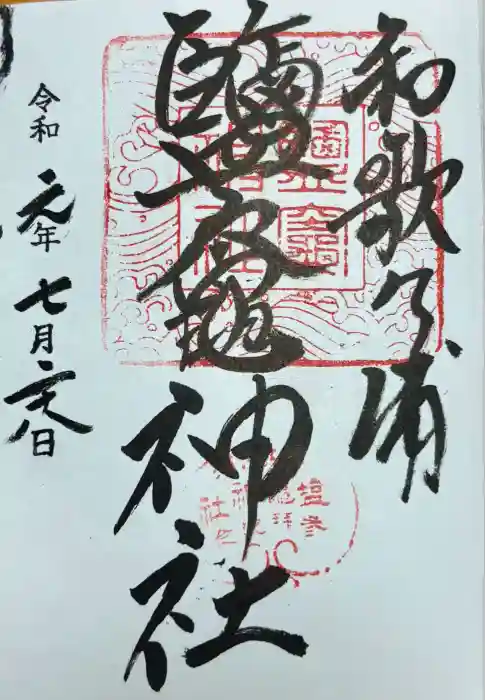 和歌乃浦
鹽竈神社
令和元年七月二十八日